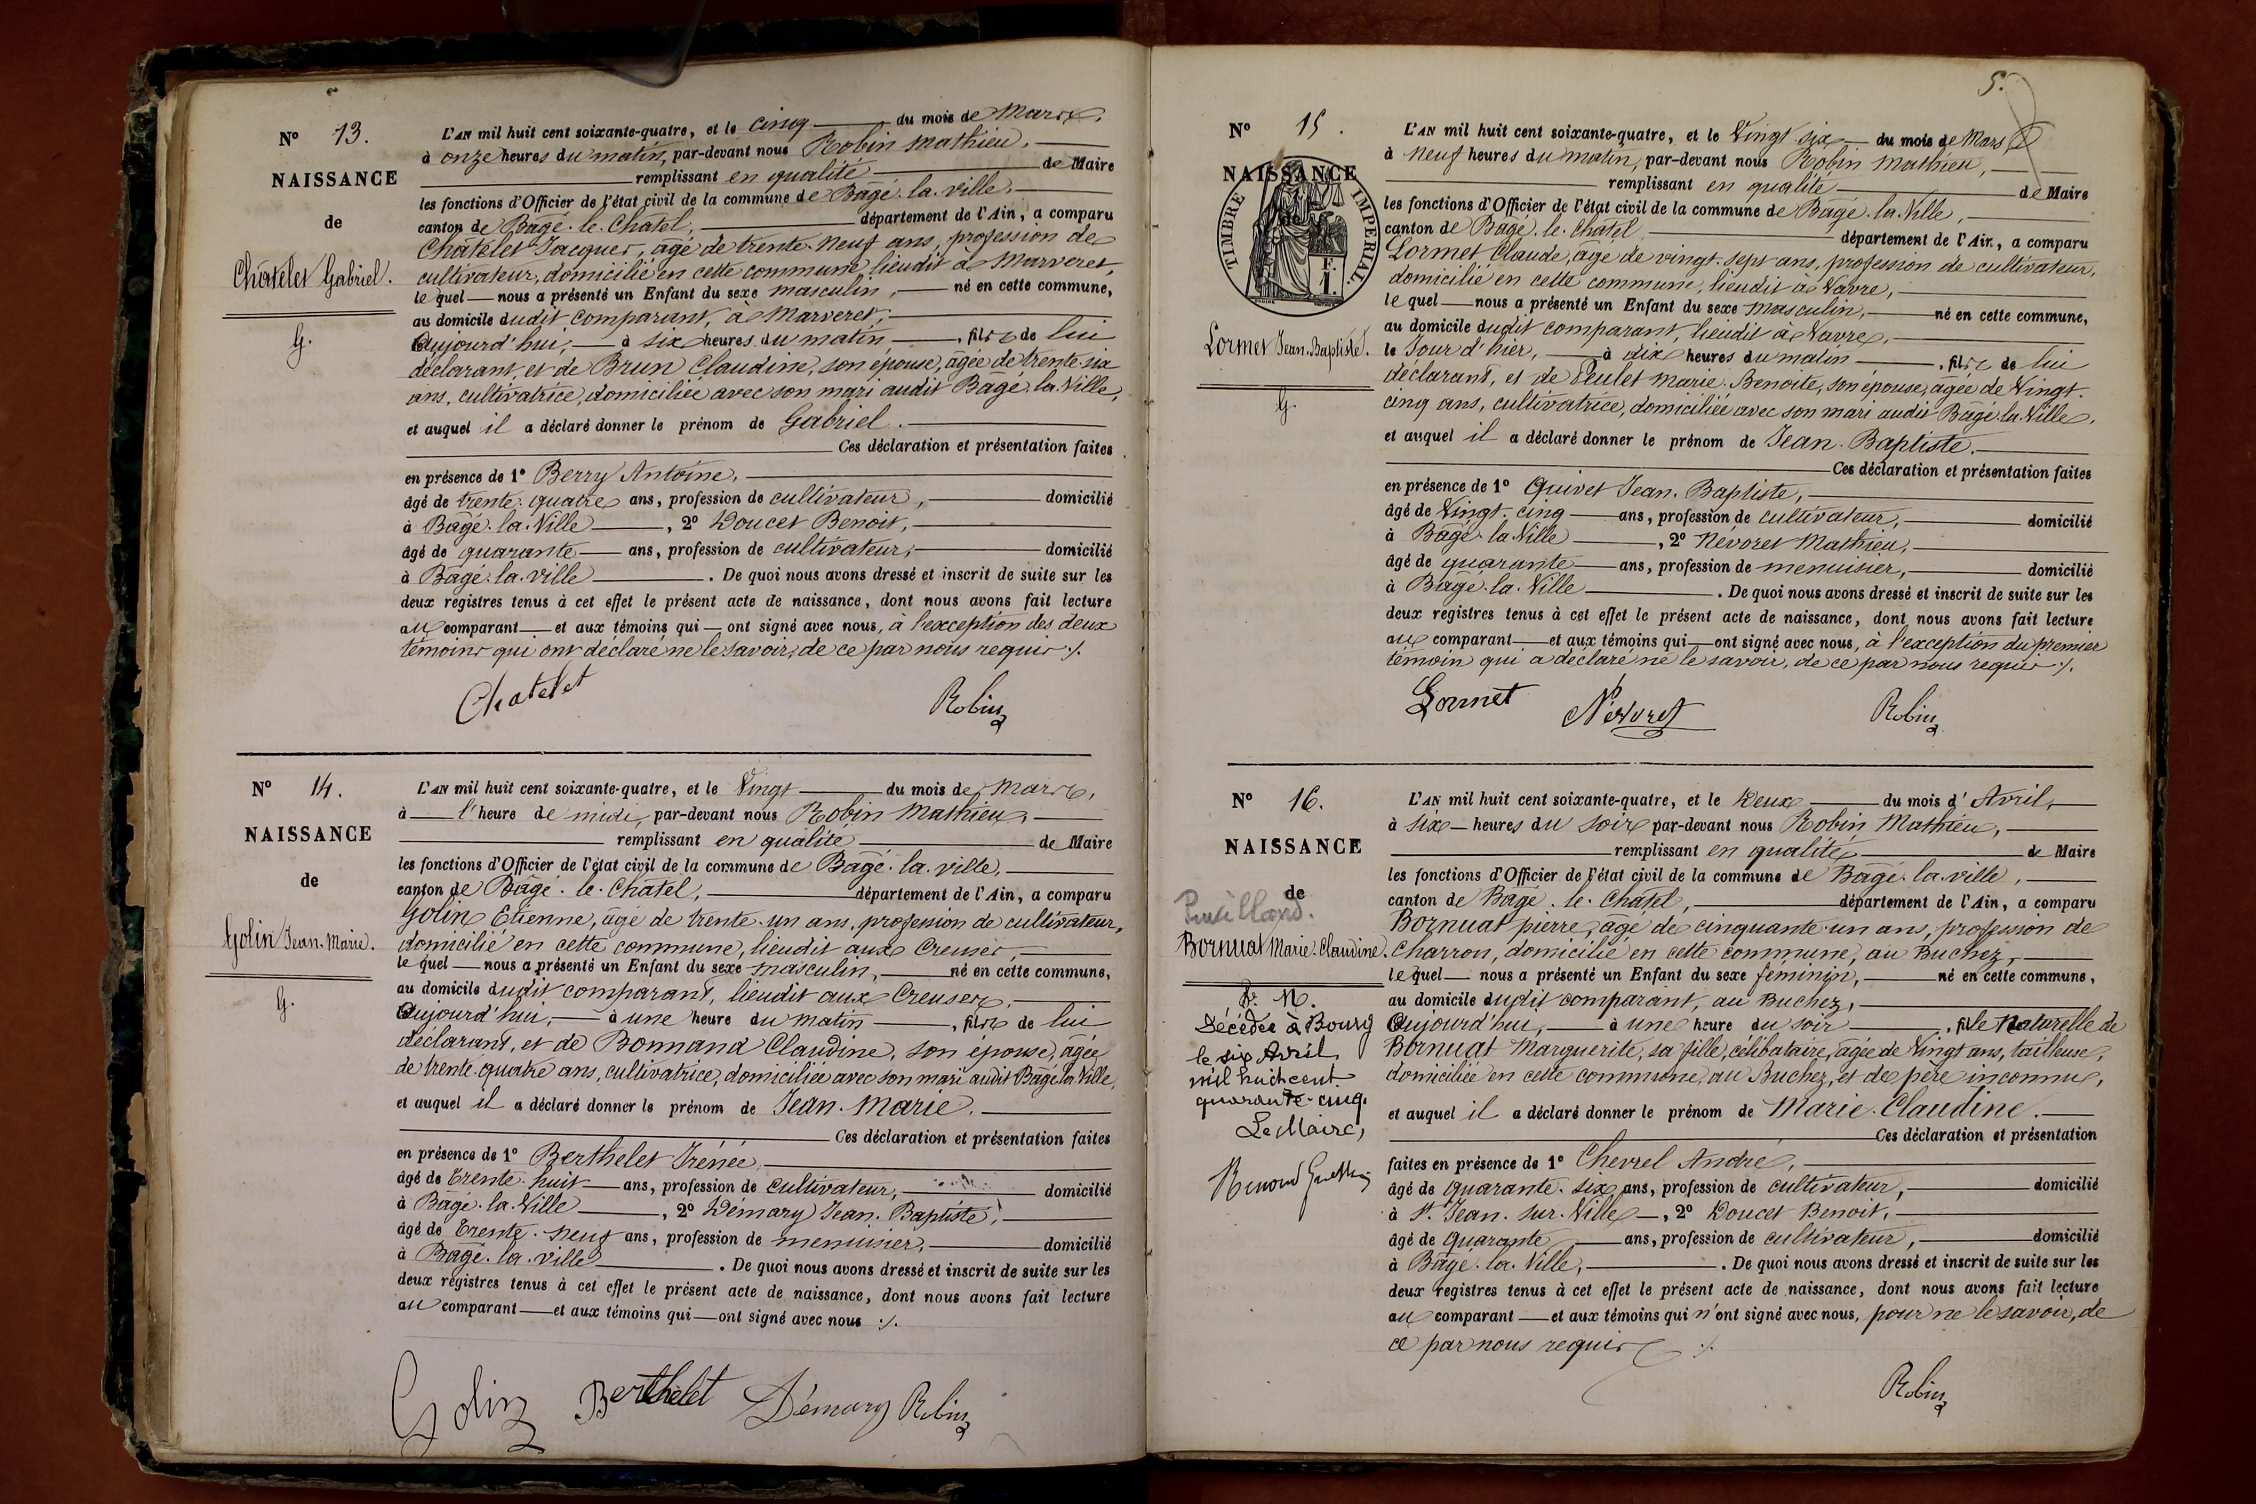 N° 13.
NAISSANCE
de
Châtelet Gabriel.
G.
L'AN mil huit cent soixante-quatre, et le cinq du mois de Mars,
à onze heures du matin, par-devant nous Robin Mathieu,
remplissant en qualité de Maire
les fonctions d'Officier de l'état civil de la commune de Bâgé-la-ville,
canton de Bâgé-le-Châtel, département de l'Ain, a comparu
Châtelet Jacques, âgé de trente-neuf ans, profession de
cultivateur, domicilié en cette commune, lieudit à Marveret,
le quel nous a présenté un Enfant du sexe masculin, né en cette commune,
au domicile dudit comparant, à Marveret,
Aujourd'hui, à six heures du matin, fils de lui
déclarant, et de Brun Claudine, son épouse, âgée de trente-six
ans, cultivatrice, domiciliée avec son mari audit Bâgé-la-Ville,
et auquel il a déclaré donner le prénom de Gabriel.
Ces déclaration et présentation faites
en présence de 1° Berry Antoine,
âgé de trente-quatre ans, profession de cultivateur, domicilié
à Bâgé-la-Ville, 2° Doucet Benoit,
âgé de quarante ans, profession de cultivateur, domicilié
à Bâgé-la-ville. De quoi nous avons dressé et inscrit de suite sur les
deux registres tenus à cet effet le présent acte de naissance, dont nous avons fait lecture
au comparant et aux témoins qui ont signé avec nous, à l'exception des deux
témoins qui ont déclaré ne le savoir, de ce par nous requis ./.
Chatelet Robin
N° 14.
NAISSANCE
de
Golin Jean-Marie.
G.
L'AN mil huit cent soixante-quatre, et le Vingt du mois de Mars,
à l'heure de midi, par-devant nous Robin Mathieu,
remplissant en qualité de Maire
les fonctions d'Officier de l'état civil de la commune de Bâgé-la-ville,
canton de Bâgé-le-Châtel, département de l'Ain, a comparu
Golin Etienne, âgé de trente-un ans, profession de cultivateur,
domicilié en cette commune, lieudit aux Creuses,
le quel nous a présenté un Enfant du sexe masculin, né en cette commune,
au domicile dudit comparant, lieudit aux Creuses,
Aujourd'hui, à une heure du matin, fils de lui
déclarant, et de Bonnand Claudine, son épouse, âgée
de trente-quatre ans, cultivatrice, domiciliée avec son mari audit Bâgé la Ville,
et auquel il a déclaré donner le prénom de Jean-Marie.
Ces déclaration et présentation faites
en présence de 1° Berthelet Irénée,
âgé de Trente-huit ans, profession de cultivateur, domicilié
à Bâgé-la-Ville, 2° Démary Jean-Baptiste,
âgé de Trente-neuf ans, profession de menuisier, domicilié
à Bâgé-la-ville. De quoi nous avons dressé et inscrit de suite sur les
deux registres tenus à cet effet le présent acte de naissance, dont nous avons fait lecture
au comparant et aux témoins qui ont signé avec nous ./.
Golin Berthelet Démary Robin
5.
N° 15.
NAISSANCE
de
TIMBRE IMPERIAL
1 F.
Lormet Jean-Baptiste.
G.
L'AN mil huit cent soixante-quatre, et le Vingt six du mois de Mars
à Neuf heures du matin, par-devant nous Robin Mathieu,
remplissant en qualité de Maire
les fonctions d'Officier de l'état civil de la commune de Bâgé-la-Ville,
canton de Bâgé-le-Châtel département de l'Ain, a comparu
Lormet Claude, âgé de vingt-sept ans, profession de cultivateur,
domicilié en cette commune, lieudit à Vavre,
le quel nous a présenté un Enfant du sexe Masculin, né en cette commune,
au domicile dudit comparant, lieudit à Vavre,
le Jour d'hier, à dix heures du matin, fils de lui
déclarant, et de Peulet Marie-Benoite, son épouse, âgée de Vingt-
cinq ans, cultivatrice, domiciliée avec son mari audit Bâgé-la-Ville,
et auquel il a déclaré donner le prénom de Jean-Baptiste.
Ces déclaration et présentation faites
en présence de 1° Quivet Jean-Baptiste,
âgé de Vingt-cinq ans, profession de cultivateur, domicilié
à Bâgé-la-Ville, 2° Névoret Mathieu,
âgé de quarante ans, profession de menuisier, domicilié
à Bâgé-la-Ville. De quoi nous avons dressé et inscrit de suite sur les
deux registres tenus à cet effet le présent acte de naissance, dont nous avons fait lecture
au comparant et aux témoins qui ont signé avec nous, à l'exception du premier
témoin qui a déclaré ne le savoir, de ce par nous requis ./.
Lormet Névoret Robin
N° 16.
NAISSANCE
de
Bornuat Marie-Claudine.
Décédée à Bourg
le six Avril
mil huit cent
quarante-cinq.
Le Maire,
L'AN mil huit cent soixante-quatre, et le Deux du mois d'Avril,
à six heures du soir par-devant nous Robin Mathieu,
remplissant en qualité de Maire
les fonctions d'Officier de l'état civil de la commune de Bâgé-la-ville,
canton de Bâgé-le-Châtel, département de l'Ain, a comparu
Bornuat pierre, âgé de cinquante-un ans, profession de
Charron, domicilié en cette commune, au Buchez,
le quel nous a présenté un Enfant du sexe féminin, né en cette commune,
au domicile dudit comparant, au Buchez,
Aujourd'hui, à une heure du soir, fille Naturelle de
Bornuat Marguerite, sa fille, célibataire, âgée de Vingt ans, tailleuse,
domiciliée en cette commune, au Buchez, et de père inconnu,
et auquel il a déclaré donner le prénom de Marie-Claudine.
Ces déclaration et présentation
faites en présence de 1° Chevrel André,
âgé de quarante-six ans, profession de cultivateur, domicilié
à St. Jean-sur-Ville, 2° Doucet Benoit,
âgé de quarante ans, profession de cultivateur, domicilié
à Bâgé-la-Ville, . De quoi nous avons dressé et inscrit de suite sur les
deux registres tenus à cet effet le présent acte de naissance, dont nous avons fait lecture
au comparant et aux témoins qui n'ont signé avec nous, pour ne le savoir, de
ce par nous requis ./.
Robin